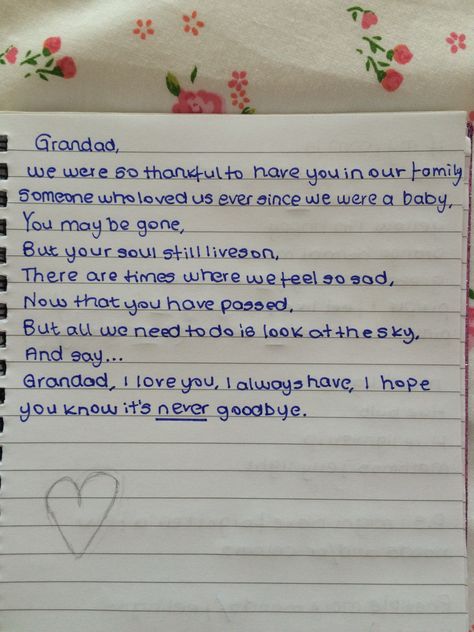 Grandad,
we were so thankful to have you in our family
someone who loved us ever since we were a baby,
You may be gone,
But your soul still lives on,
There are times where we feel so sad,
Now that you have passed,
But all we need to do is look at the sky,
And say...
Grandad, I love you, I always have, I hope
you know it's never goodbye.